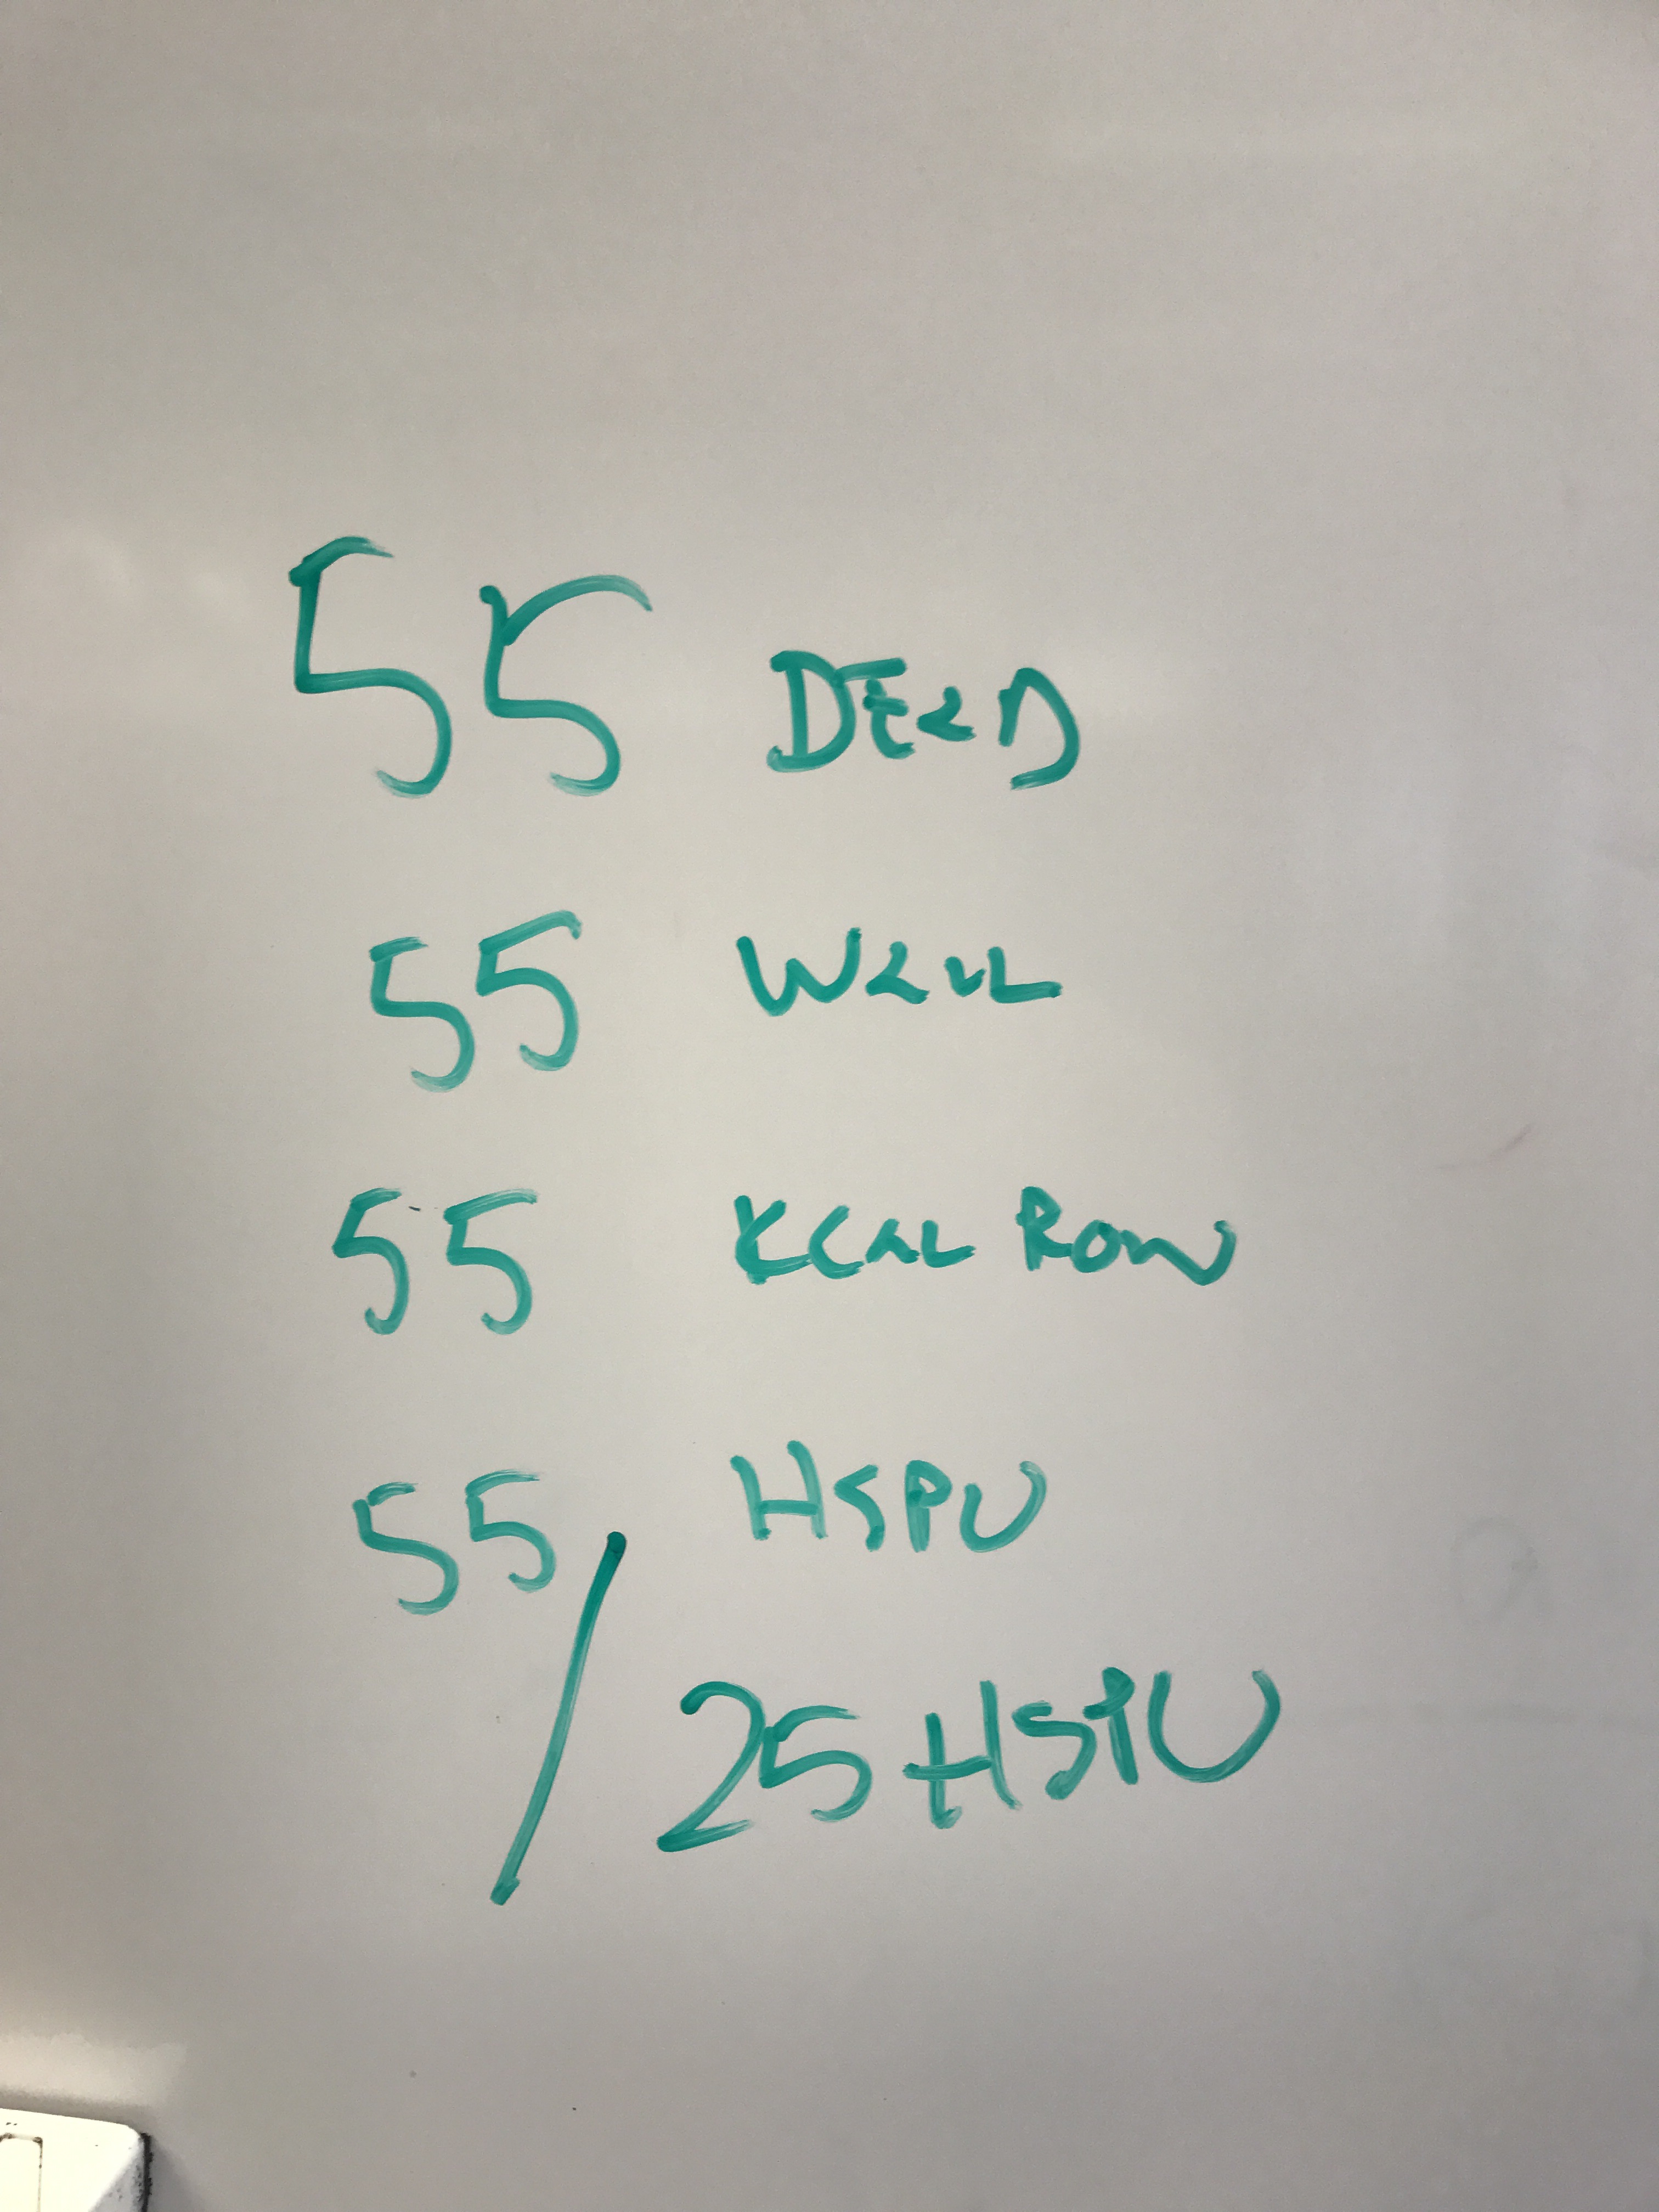 55 DEAD
55 WALL
55 KCAL ROW
55 HSPU
/ 25 HSPU